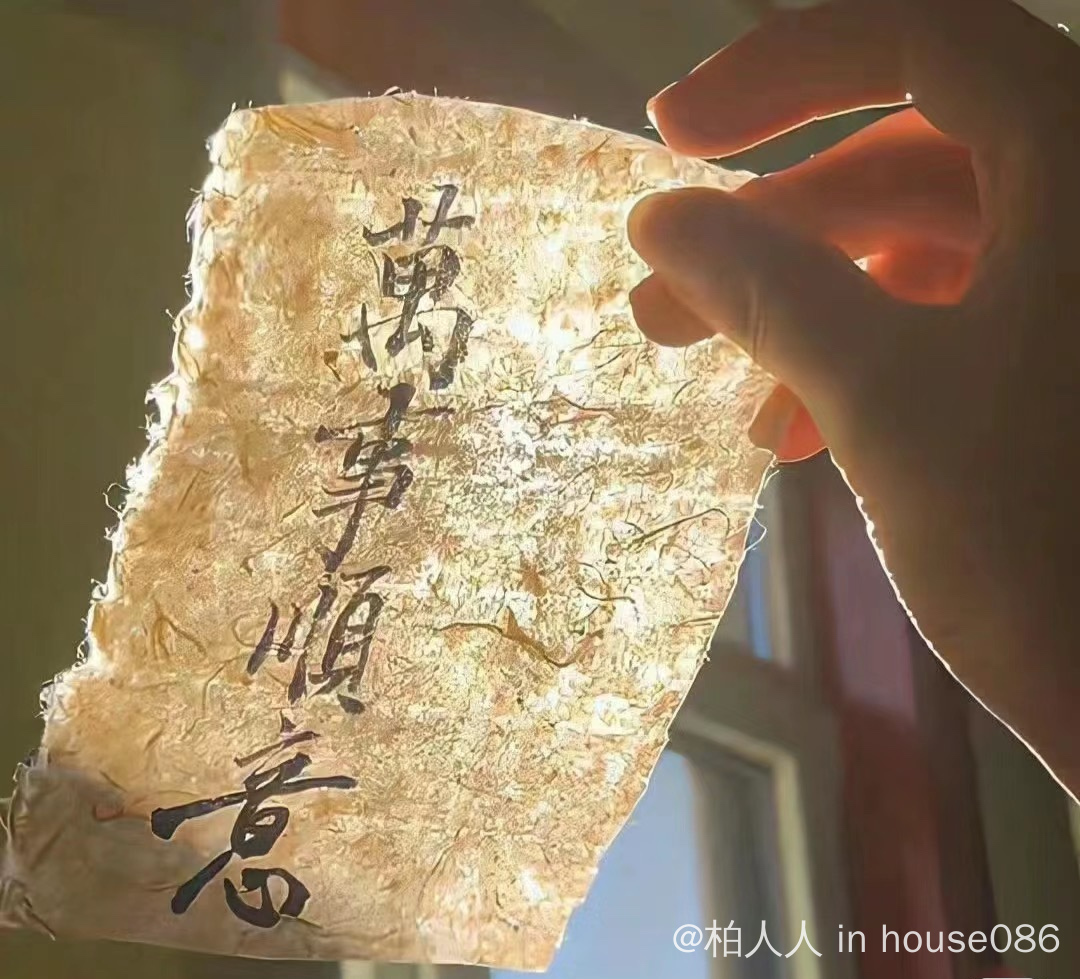 萬事順意
@柏人人 in house086